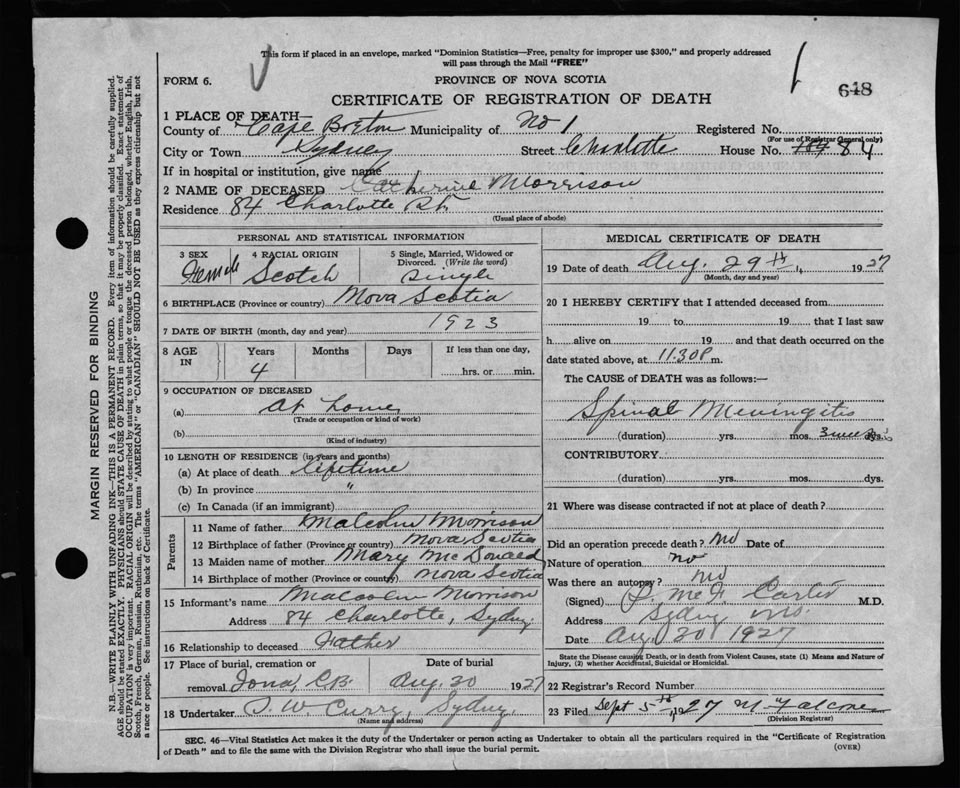 This form if placed in an envelope, marked "Dominion Statistics—Free, penalty for improper use $300," and properly addressed
will pass through the Mail "FREE"
FORM 6.
PROVINCE OF NOVA SCOTIA
648
CERTIFICATE OF REGISTRATION OF DEATH
1 PLACE OF DEATH—
County of Cape Breton Municipality of No 1 Registered No.
(For use of Registrar General only)
City or Town Sydney Street Charlotte House No. 84
If in hospital or institution, give name
2 NAME OF DECEASED Catherine Morrison
Residence 84 Charlotte St.
(Usual place of abode)
PERSONAL AND STATISTICAL INFORMATION
3 SEX 4 RACIAL ORIGIN 5 Single, Married, Widowed or
Divorced. (Write the word)
Female Scotch Single
6 BIRTHPLACE (Province or country) Nova Scotia
7 DATE OF BIRTH (month, day and year) 1923
8 AGE IN Years Months Days If less than one day,
4 hrs. or min.
9 OCCUPATION OF DECEASED
(a) At home
(Trade or occupation or kind of work)
(b)
(Kind of industry)
10 LENGTH OF RESIDENCE (in years and months)
(a) At place of death lifetime
(b) In province "
(c) In Canada (if an immigrant)
Parents
11 Name of father Malcolm Morrison
12 Birthplace of father (Province or country) Nova Scotia
13 Maiden name of mother Mary McDonald
14 Birthplace of mother (Province or country) Nova Scotia
15 Informant's name Malcolm Morrison
Address 84 Charlotte, Sydney
16 Relationship to deceased Father
17 Place of burial, cremation or Date of burial
removal Iona, C.B. Aug. 30 1927
18 Undertaker Curry, Sydney
(Name and address)
MEDICAL CERTIFICATE OF DEATH
19 Date of death Aug. 29th 1927
(Month, day and year)
20 I HEREBY CERTIFY that I attended deceased from
19 to 19 that I last saw
h alive on 19 and that death occurred on the
date stated above, at 11.30 P m.
The CAUSE of DEATH was as follows:—
Spinal Meningitis
(duration) yrs. mos. 3 dys.
CONTRIBUTORY
(duration) yrs. mos. dys.
21 Where was disease contracted if not at place of death?
Did an operation precede death? No Date of
Nature of operation no
Was there an autopsy? No
(Signed) M.D.
Address Sydney
Date Aug 30 1927
State the Disease causing Death, or in death from Violent Causes, state (1) Means and Nature of
Injury, (2) whether Accidental, Suicidal or Homicidal.
22 Registrar's Record Number
23 Filed Sept 5th 1927
(Division Registrar)
SEC. 46—Vital Statistics Act makes it the duty of the Undertaker or person acting as Undertaker to obtain all the particulars required in the "Certificate of Registration
of Death" and to file the same with the Division Registrar who shall issue the burial permit.
(OVER)
MARGIN RESERVED FOR BINDING
N.B.—WRITE PLAINLY WITH UNFADING INK—THIS IS A PERMANENT RECORD. Every item of information should be carefully supplied.
AGE should be stated EXACTLY. PHYSICIANS should STATE CAUSE OF DEATH in plain terms, so that it may be properly classified. Exact statement of
OCCUPATION is very important. RACIAL ORIGIN will be described by stating to what people or tongue the deceased person belonged, whether English, Irish,
Scotch, French, German, Russian, Ruthenian, etc. The terms "AMERICAN" or "CANADIAN" SHOULD NOT BE USED as they express citizenship but not
a race or people. See instructions on back of Certificate.